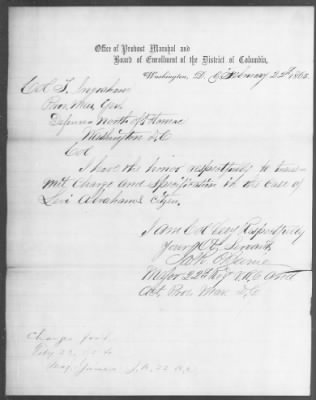 Office of Provost Marshal and
Board of Enrollment of the District of Columbia,
Washington, D. C. February 22d 1865.
Col T. Ingraham
Pro. Mar. Genl
Defences North of Potomac
Washington D.C
Col
I have the honor respectfully to trans-
mit Charge and Specification in the case of
Levi Abrahams Citzn.
I am Col Very Respectfully
Your Obt Servant
Major 22d Regt V.R.C.
Pro. Mar. D.C
Charge for
Feby 22
Maj. James 22